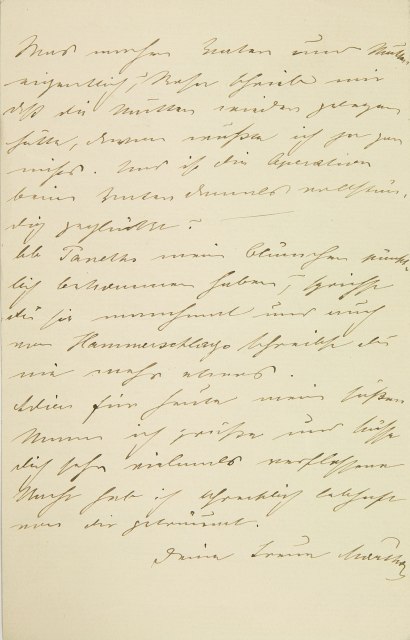 Was machen Vater und Mutter
eigentlich, Rosa schrieb mir
daß die Mutter wieder gelegen
hätte, davon wußte ich ja gar
nichts. Und ist die Operation
beim Vater damals vollstän-
dig geglückt?
Ob Paneths mein Blümchen
bekommen haben,
du sie manchmal und auch
von Hammerschlags schreibst du
nie mehr etwas.
Adieu für heute mein süßer
Mann ich grüße und küsse
dich sehr vielmals verflossene
Nacht hab ich schrecklich lebhaft
von dir geträumt.
Deine treue Martha